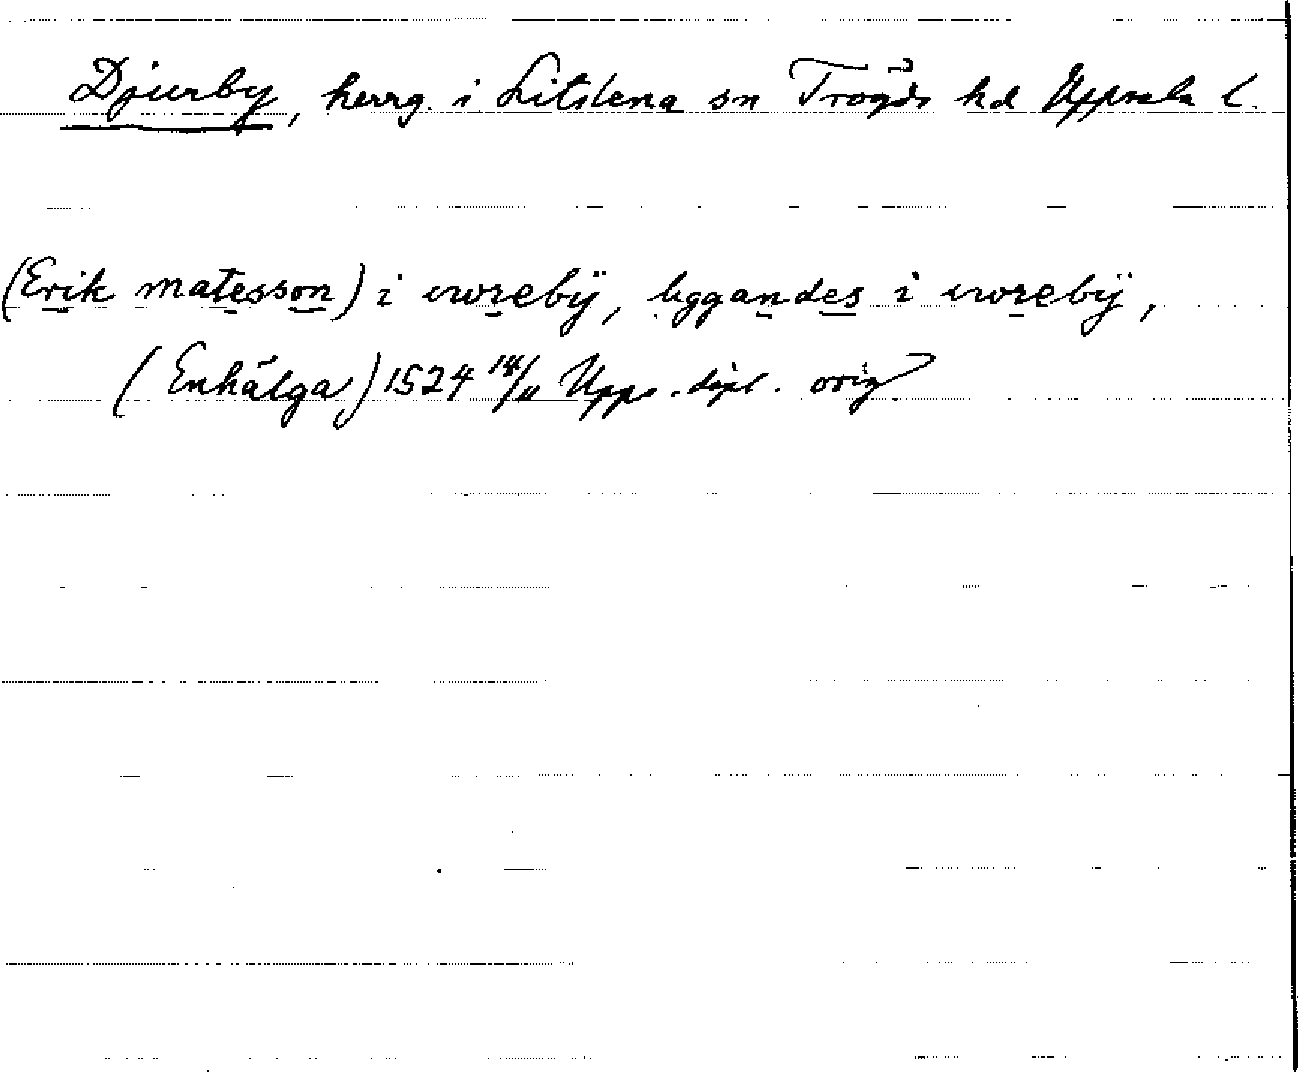 Djurby, herrg. i Litslena sn Trögds hd Uppsala l.
(Erik matesson) i iwrebÿ, liggandes i iwrebÿ,
(Enhälga) 1524 14/11 Upps. dipl. orig